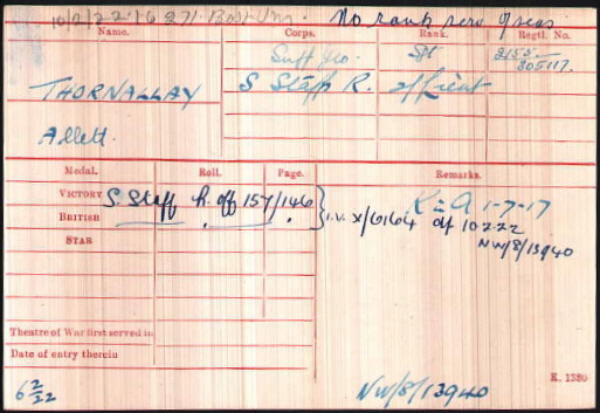 10/2/22. 16271. No rank serv o/seas
Name. Corps. Rank. Regtl. No.
Suff Yeo. Spt 2155
305117.
THORNALLAY S Staff R. 2/Lieut
Allett.
Medal. Roll. Page. Remarks.
VICTORY S. Staff R. off 157/146 K in A 1-7-17
BRITISH I.V. X/6164 df 10.2.22
NW/8/13940
STAR
Theatre of War first served in
Date of entry therein
K. 1380
6 2/22 NW/8/13940